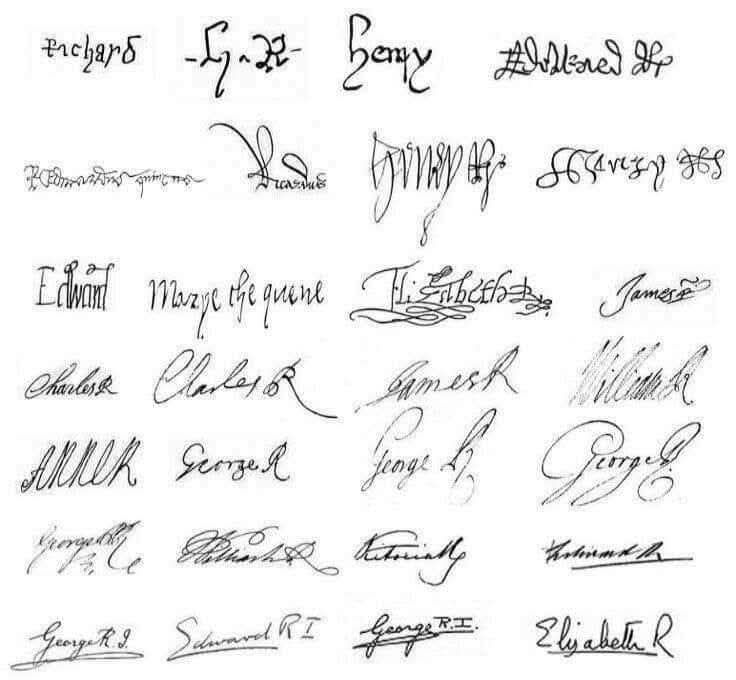 Richard H R Henry Edward R
Ricardus Henry R Henry R
Edward Marye the quene Elizabeth R James R
Charles R Charles R James R William R
ANNE R George R George R George R
George R William R Victoria R Edward R
George R. I. Edward R I George R. I. Elizabeth R